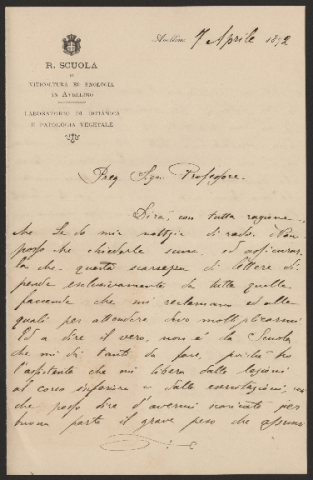 R. SCUOLA
DI
VITICOLTURA ED ENOLOGIA
IN AVELLINO
LABORATORIO DI BOTANICA
E PATOLOGIA VEGETALE
Avellino, 7 Aprile 1892
Preg. Sign. Professore.
Dirà, con tutta ragione
che Le do mie notizie di rado. Non
posso che chiederle scusa ed assicurar-
la che questa scarsezza di lettere di-
pende esclusivamente da tutte quelle
faccende che mi reclamano ed alle
quali per attendere devo moltiplicarmi
Ed a dire il vero, non è la Scuola
che mi dà tanto da fare, poiché ho
l'assistente che mi libera dalle lezioni
al corso inferiore e dalle esercitazioni,
che posso dire d'avermi scaricato per
buona parte il grave peso che